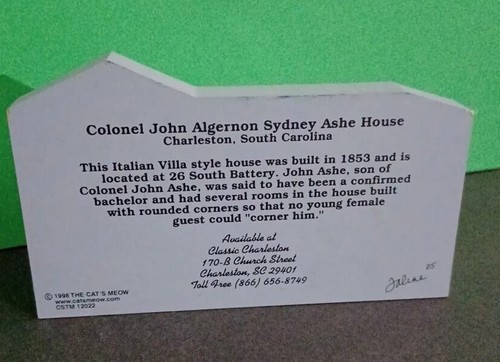 Colonel John Algernon Sydney Ashe House
Charleston, South Carolina
This Italian Villa style house was built in 1853 and is
located at 26 South Battery. John Ashe, son of
Colonel John Ashe, was said to have been a confirmed
bachelor and had several rooms in the house built
with rounded corners so that no young female
guest could "corner him."
Available at
Classic Charleston
170-B Church Street
Charleston, SC 29401
Toll Free (866) 656-8749
© 1998 THE CAT'S MEOW
www.catsmeow.com
CSTM 12022
Faline 05